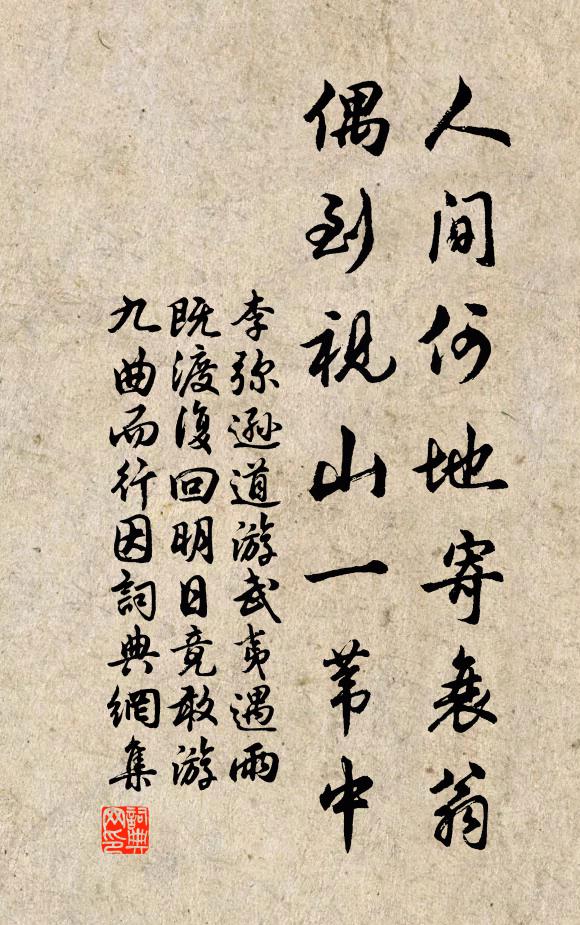 人间何地寄衰翁
偶到视山一苇中
李弥遜道游武夷遇雨
既渡復回明日竟敢游
九曲而行因詞典網集
詞典网印